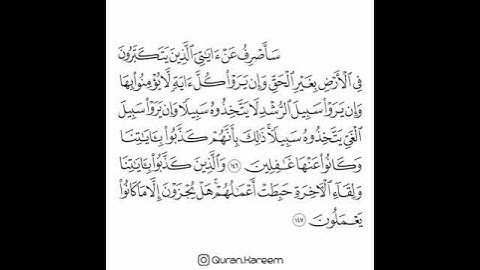 سَأَصۡرِفُ عَنۡ ءَايَٰتِيَ ٱلَّذِينَ يَتَكَبَّرُونَ
فِي ٱلۡأَرۡضِ بِغَيۡرِ ٱلۡحَقِّ وَإِن يَرَوۡاْ كُلَّ ءَايَةٖ لَّا يُؤۡمِنُواْ بِهَا
وَإِن يَرَوۡاْ سَبِيلَ ٱلرُّشۡدِ لَا يَتَّخِذُوهُ سَبِيلٗا وَإِن يَرَوۡاْ سَبِيلَ
ٱلۡغَيِّ يَتَّخِذُوهُ سَبِيلٗاۚ ذَٰلِكَ بِأَنَّهُمۡ كَذَّبُواْ بِـَٔايَٰتِنَا
وَكَانُواْ عَنۡهَا غَٰفِلِينَ ١٤٦ وَٱلَّذِينَ كَذَّبُواْ بِـَٔايَٰتِنَا
وَلِقَآءِ ٱلۡأٓخِرَةِ حَبِطَتۡ أَعۡمَٰلُهُمۡۚ هَلۡ يُجۡزَوۡنَ إِلَّا مَا كَانُواْ
يَعۡمَلُونَ ١٤٧
Quran.Kareem